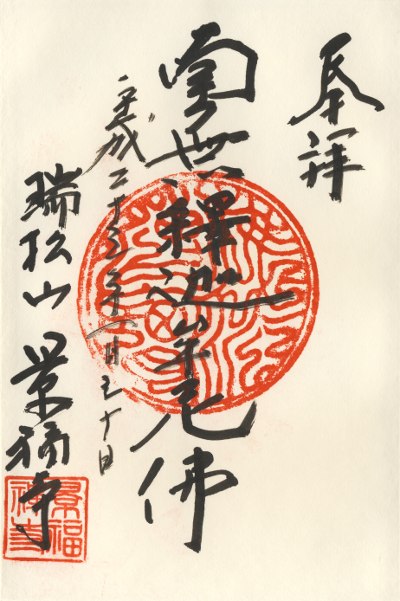 奉拝
南無釋迦牟尼佛
平成二十五年一月三十日
瑞松山 景福寺
景福寺